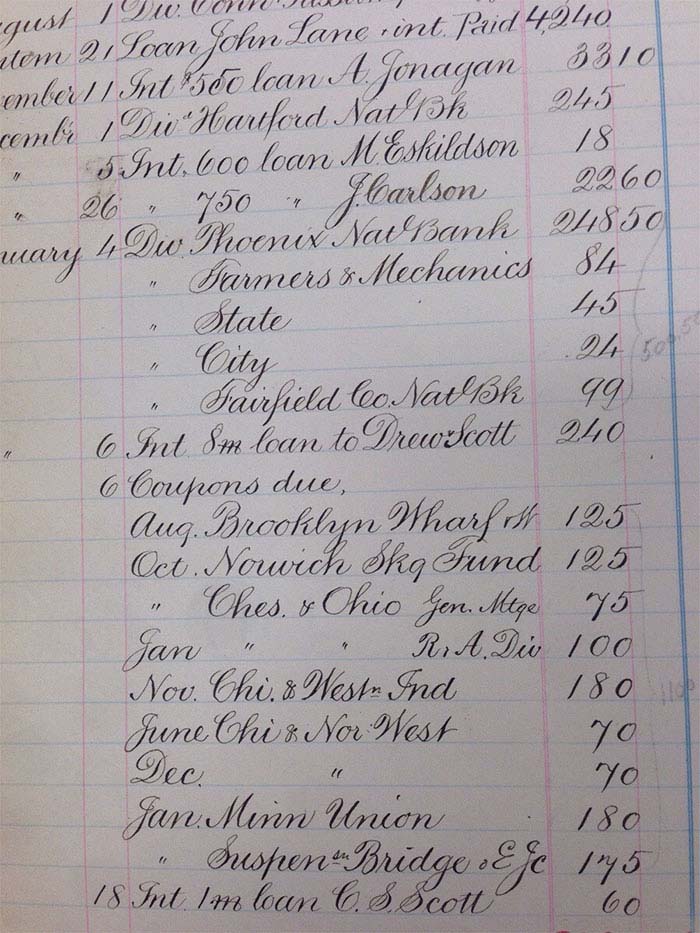 gust 1 Div. Conn
tem 21 Loan John Lane & int. Paid 4,240
ember 11 Int $550 loan A. Jonagan 33 10
cembr 1 Div Hartford Natl Bk 245
" 5 Int. 600 loan M. Eskildson 18
" 26 " 750 " J. Carlson 22 60
nuary 4 Div. Phoenix Natl Bank 248 50
" Farmers & Mechanics 84
" State 45
" City 24
" Fairfield Co. Natl Bk 99
" 6 Int 8m loan to Drew & Scott 240
6 Coupons due,
Aug. Brooklyn Wharf & W 125
Oct. Norwich Skg Fund 125
" Ches. & Ohio Gen. Mtge 75
Jan " " R. & A. Div 100
Nov. Chi. & Westn Ind 180
June Chi & Nor West 70
Dec. " 70
Jan. Minn Union 180
" Suspensn Bridge & E Jc 175
18 Int. 1m loan C. S. Scott 60